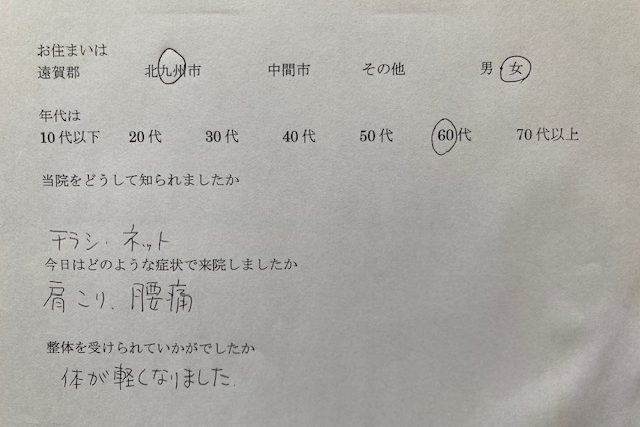 お住まいは
遠賀郡 北九州市 中間市 その他 男・女
年代は
10代以下 20代 30代 40代 50代 60代 70代以上
当院をどうして知られましたか
チラシ・ネット
今日はどのような症状で来院しましたか
肩こり、腰痛
整体を受けられていかがでしたか
体が軽くなりました.